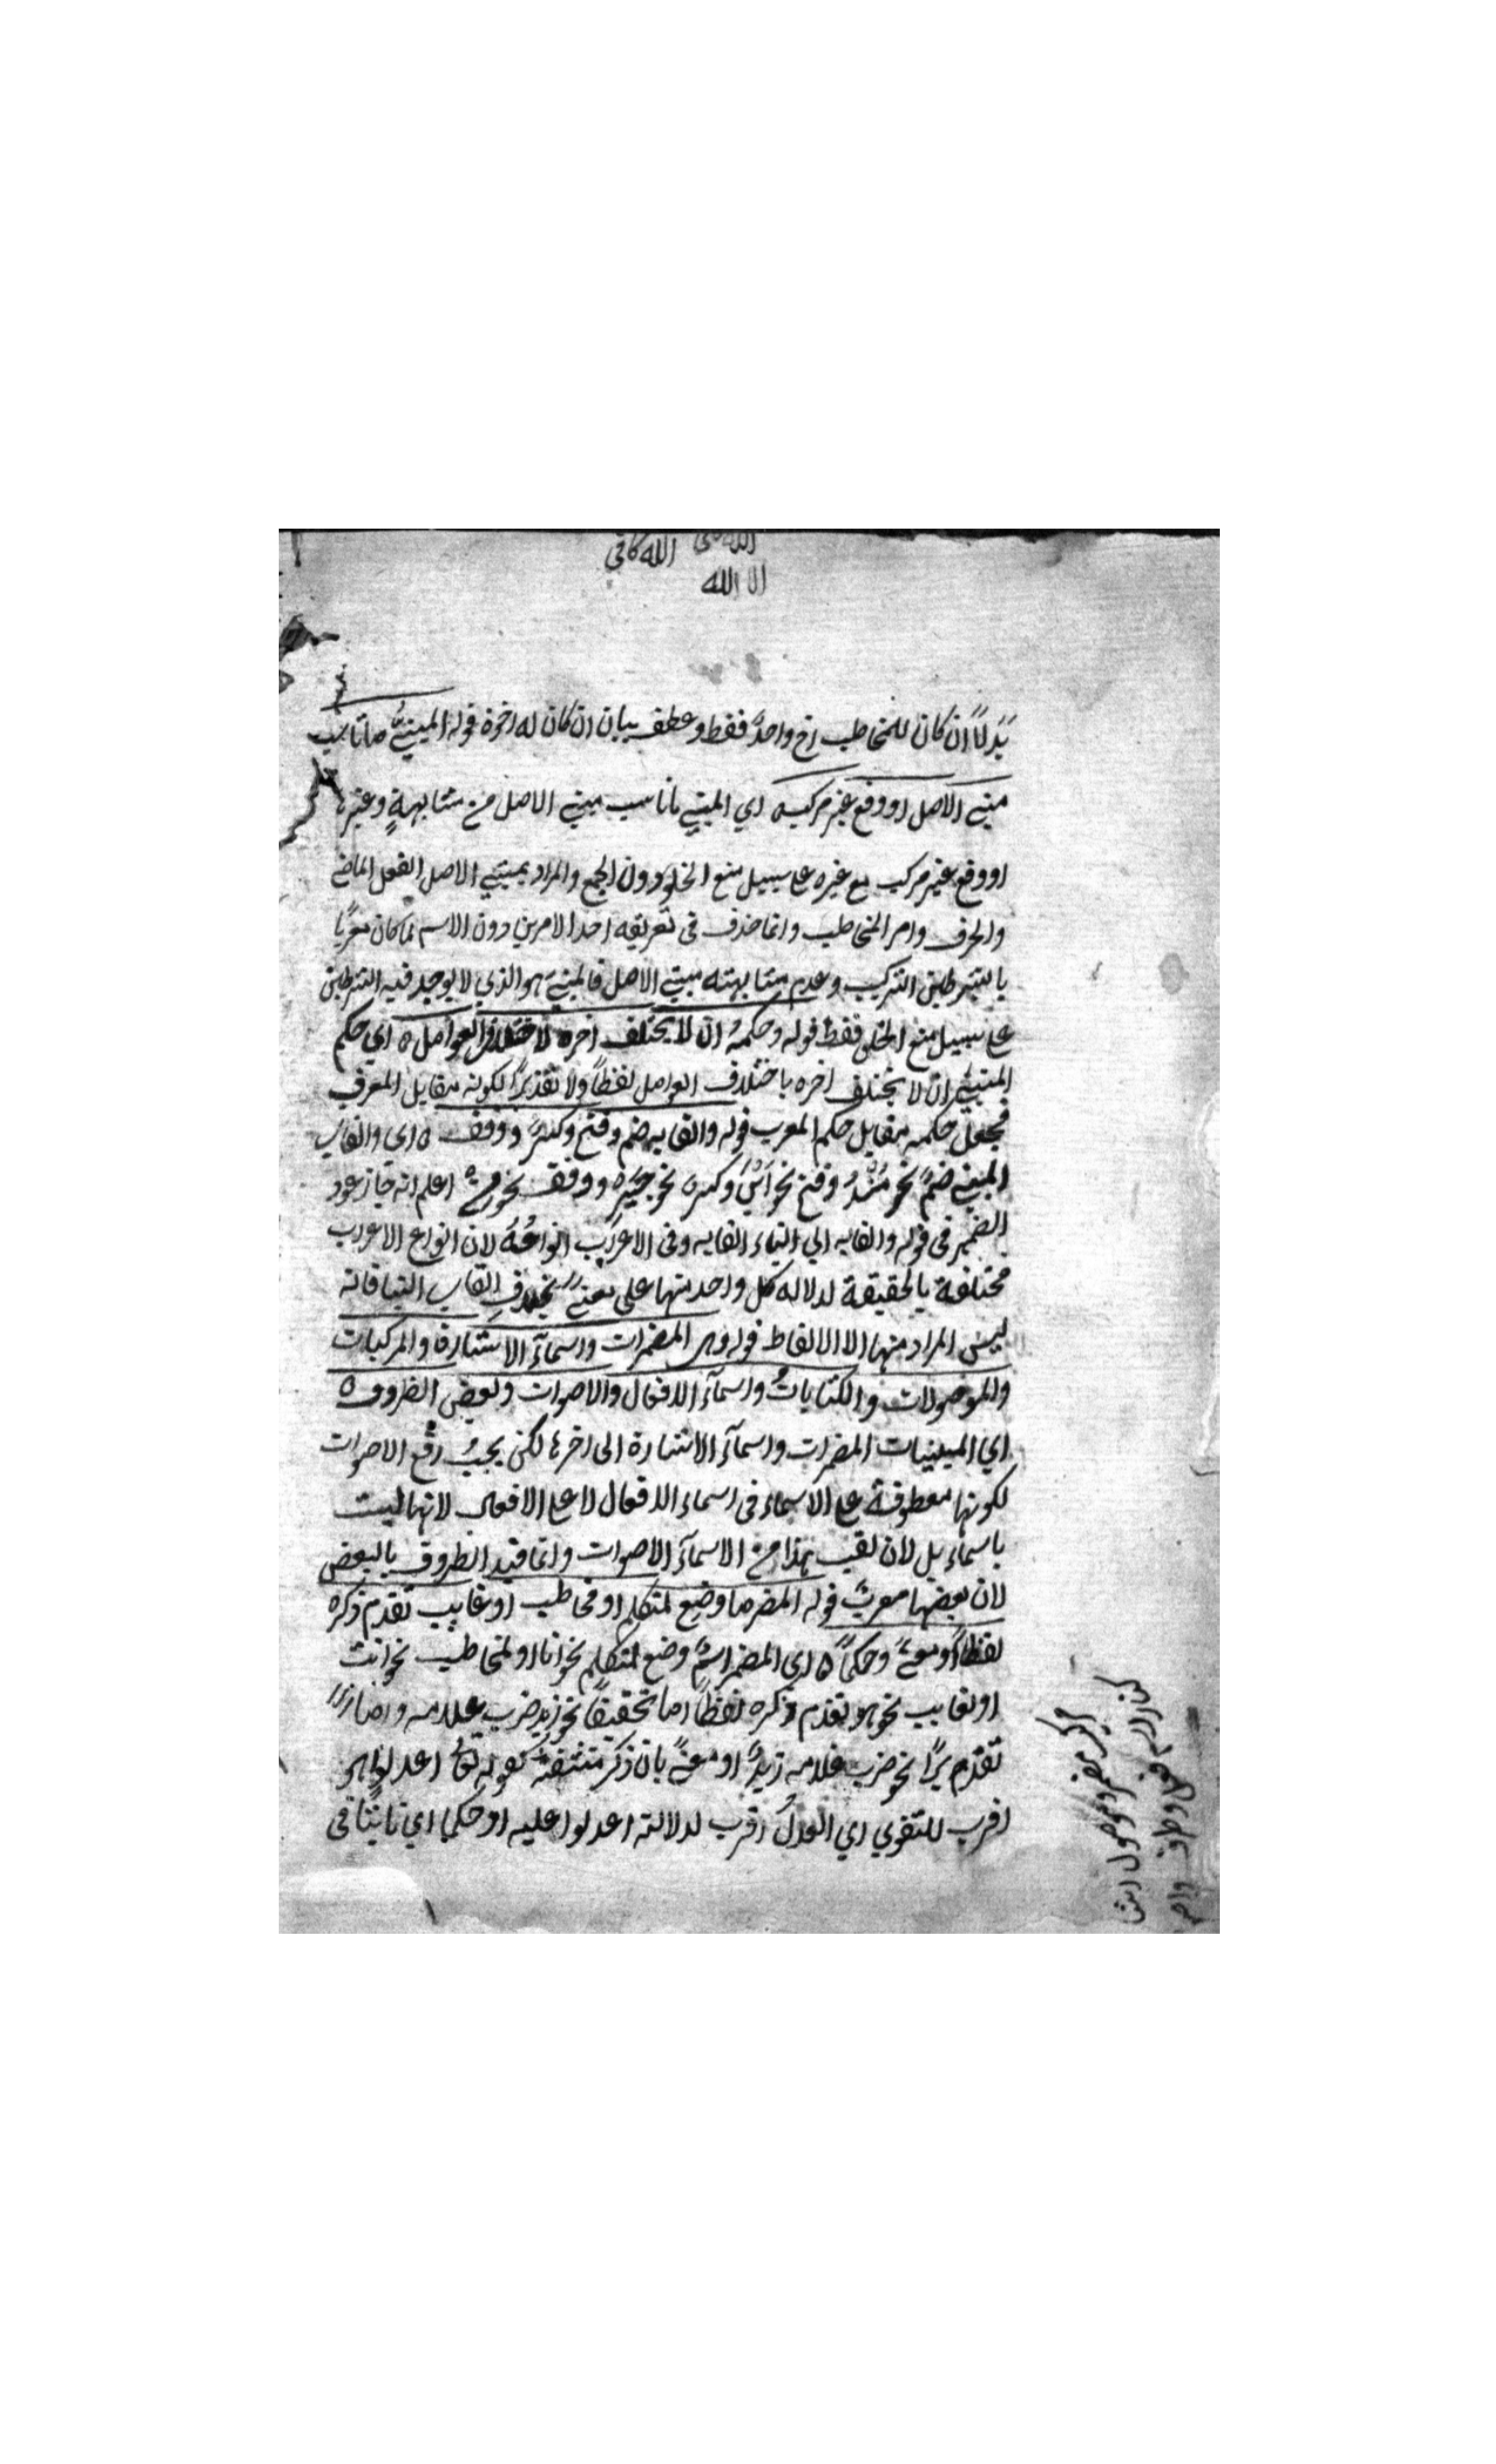 الله كافي
الا الله
بدلا ان كان للمخاطب اخ واحد فقط وعطف بيان ان كان له اخوة قوله المبني ما ناسب
مبني الاصل او وقع غير مركب ه اي المبني ما ناسب مبني الاصل من مشابهة وغيرها
او وقع غير مركب مع غيره على سبيل منع الخلو دون الجمع والمراد بمبني الاصل الفعل الماضي
والحرف وامر المخاطب وانما حذف في تعريفه احد الامرين دون الاسم لما كان معربا
بالشرطين التركيب وعدم مشابهته مبني الاصل فالمبني هو الذي لا يوجد فيه الشرطين
على سبيل منع الخلو فقط قوله وحكمه ان لا يختلف اخره لاختلاف العوامل ه اي حكم
المبني ان لا يختلف اخره باختلاف العوامل لفظا ولا تقديرا لكونه مقابل المعرب
فجعل حكمه مقابل حكم المعرب قوله والقابه ضم وفتح وكسر ووقف ه اي والقاب
المبني ضم نحو منذ وفتح نحو اين وكسر نحو جير ووقف نحو من ه اعلم انه جاز عود
الضمير في قوله والقابه الى البناء القابه وفي الاعراب انواعه لان انواع الاعراب
مختلفة بالحقيقة لدلالة كل واحد منها على معنى بخلاف القاب البنا فانه
ليس المراد منها الا الالفاظ قوله وهي المضمرات واسماء الاشارة والمركبات
والموصولات والكنايات واسماء الافعال والاصوات وبعض الظروف ه
اي المبنيات المضمرات واسماء الاشارة الى اخرها لكن يجب رفع الاصوات
لكونها معطوفة على الاسماء في اسماء الافعال لا على الافعال لانها ليست
باسماء بل لان من الاسماء الاصوات وانما قيد الظروف بالبعض
لان بعضها معرب قوله المضمر ما وضع لمتكلم او مخاطب او غايب تقدم ذكره
لفظا او معنى وحكما ه اي المضمر اسم وضع لمتكلم نحو انا او لمخاطب نحو انت
او لغايب نحو هو تقدم ذكره لفظا اما تحقيقا نحو زيد ضرب غلامه واما
تقديرا نحو ضرب غلامه زيد او معنى بان ذكر مشتقه كقوله تع اعدلوا هو
اقرب للتقوى اي العدل اقرب لدلالة اعدلوا عليه او حكما اي ثابتا في